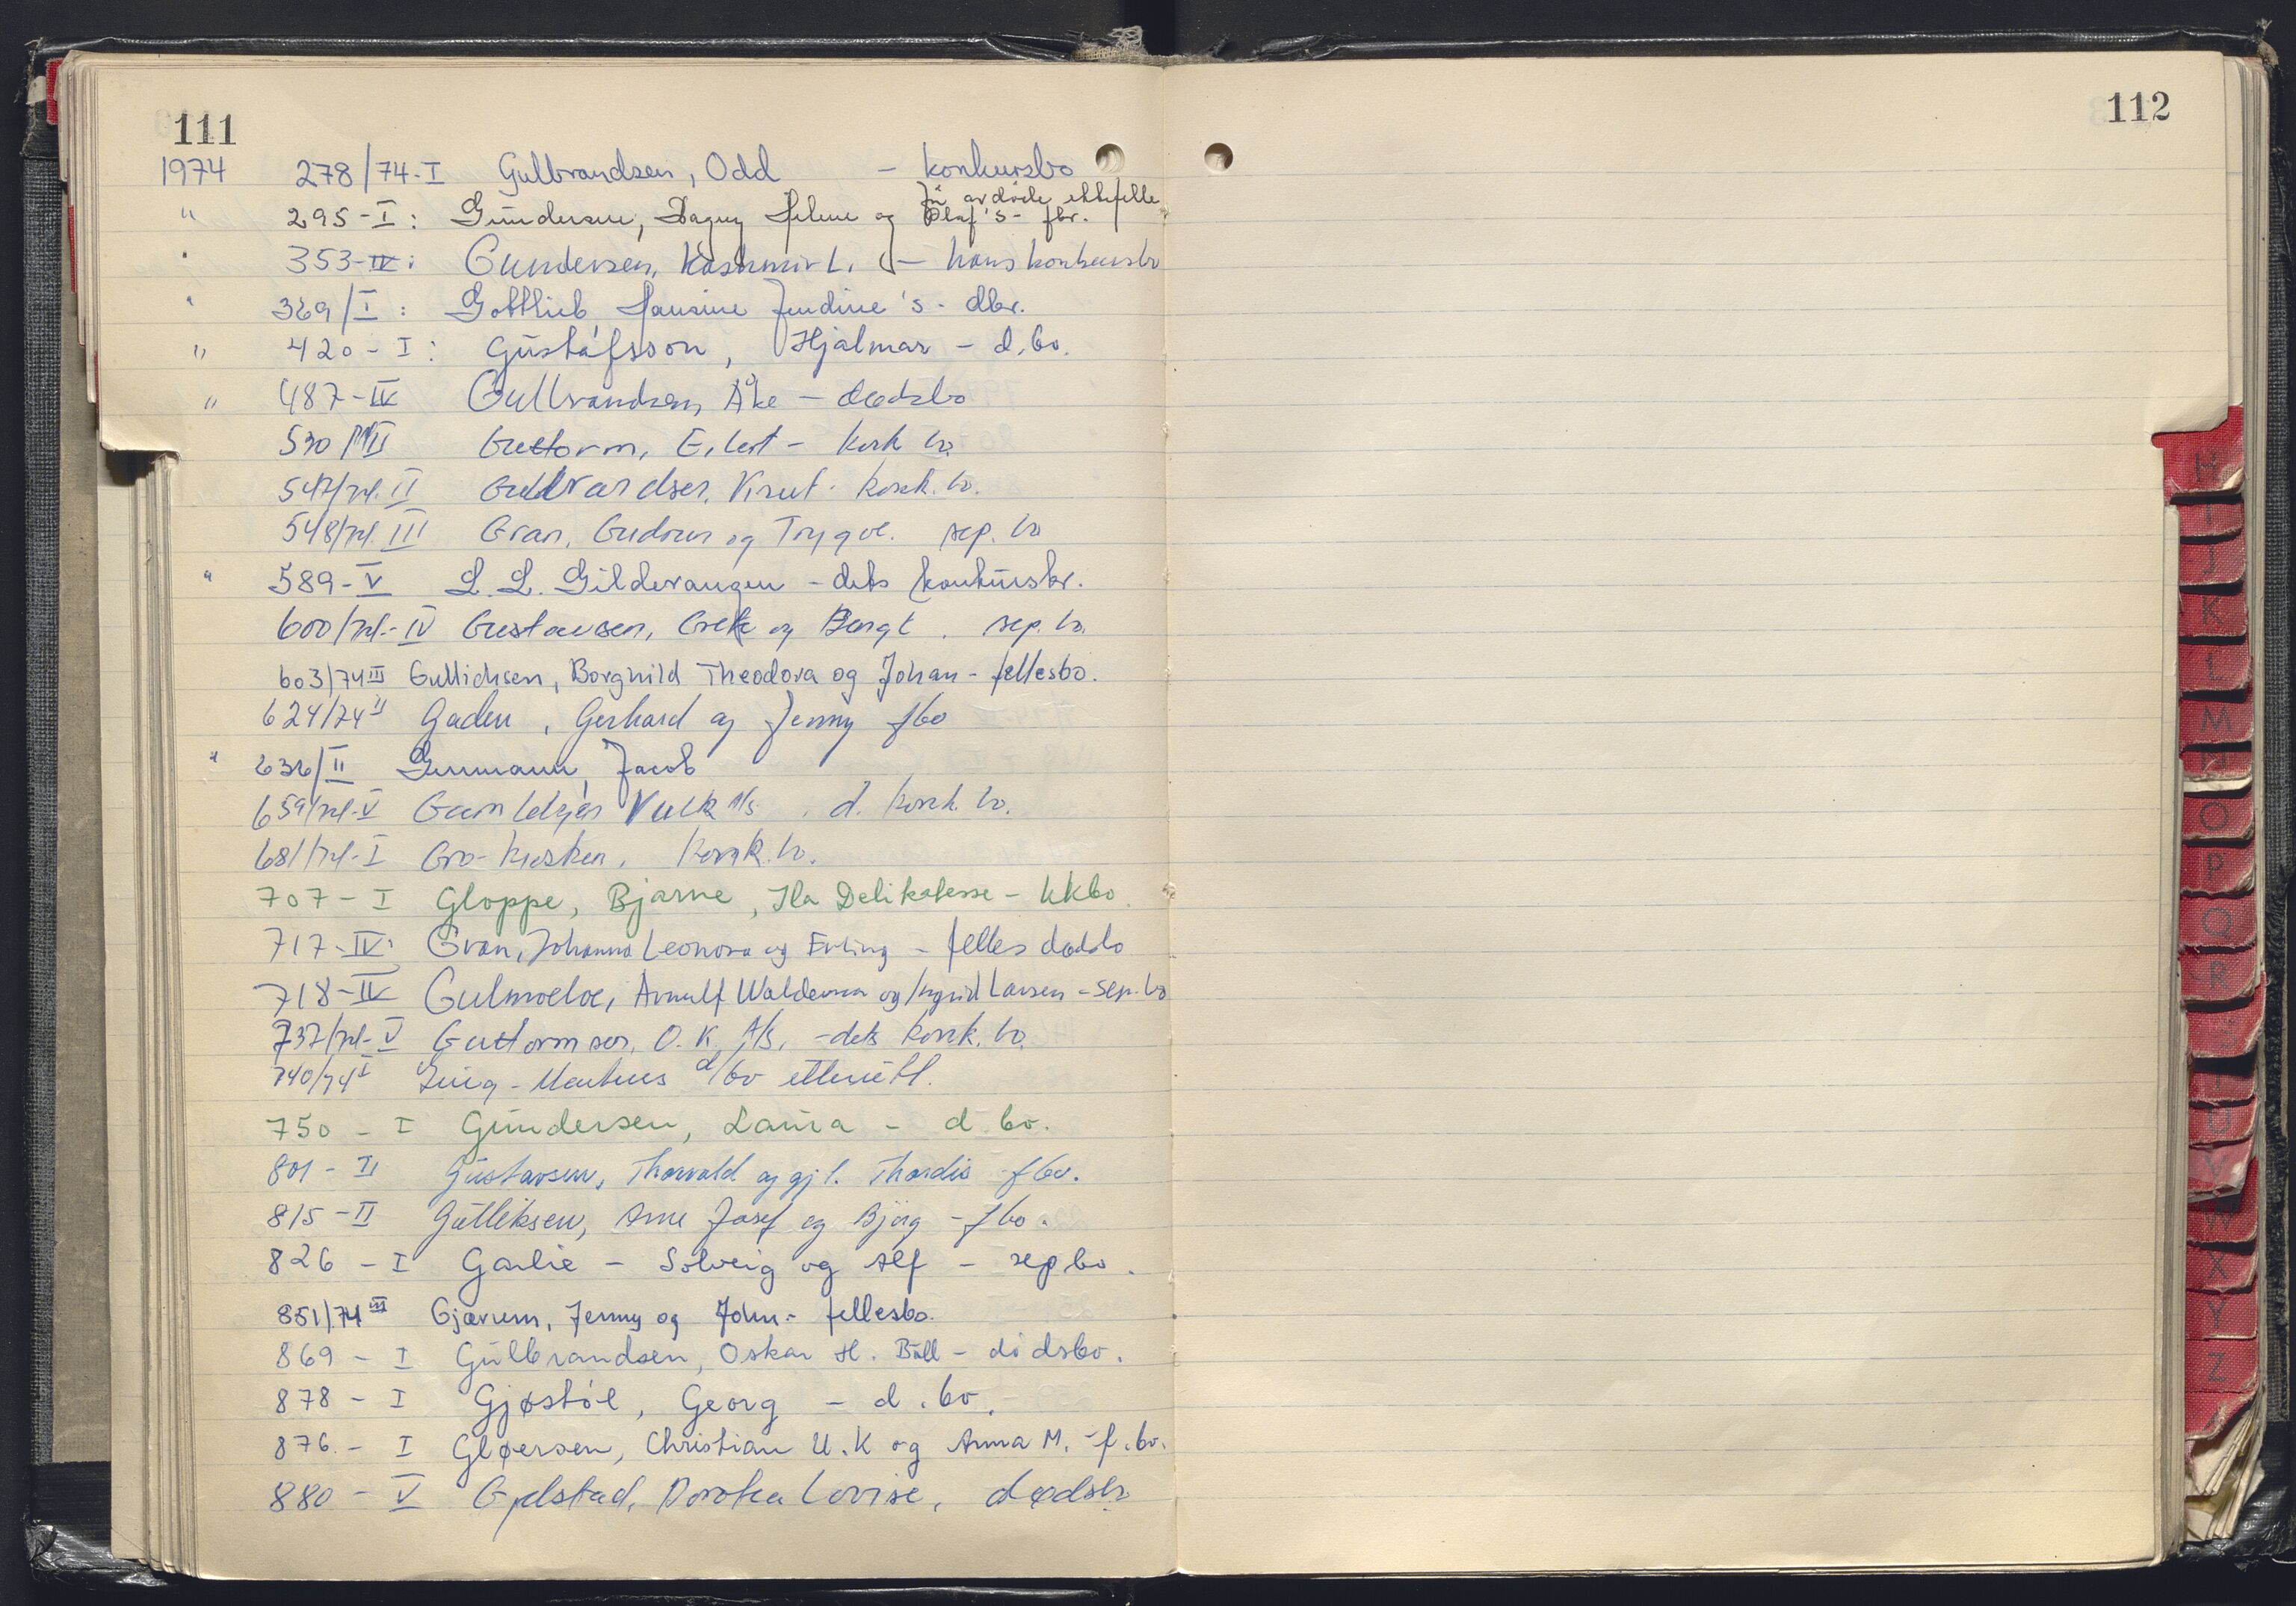 111
112
1974 278/74-I Gulbrandsen, Odd - konkursbo
" 295-I: Gundersen, Dagny Helene og Olaf's - fbr.
" 353-IV: Gundersen, Kashmir L. - hans konkursbo
" 369/I: Gottlieb Hansine Jendine's - dbr.
" 420-I: Gustafsson, Hjalmar - d.bo.
" 487-IV Gulbrandsen, Åke - dødsbo
530 Guttorm, Eilert - konk bo.
547/74.II Gulbrandsen, Knut - konk. bo.
548/74.III Gran, Gudrun og Trygve. sep. bo
" 589-V L.L. Gildevangen - dets konkursbr.
600/74-IV Gustavsen, Grete og Bengt. sep. bo.
603/74 III Gullichsen, Borghild Theodora og Johan - fellesbo.
624/74 II Gaden, Gerhard og Jenny fbo
" 636/II Germann, Jacob
659/74-V Vulk A/S. d. konk. bo.
681/74-I Gro-kiosken. Konk. bo.
707-I Gloppe, Bjarne, Ila Delikatesse - kkbo.
717-IV: Gran, Johanna Leonora og Erling - felles dødsbo
718-IV Arnulf Waldemar og Ingrid Larsen - sep. bo
737/74-V Guttormsen, O.K. A/S, - dets konk. bo.
740/74 I d/bo
750 - I Gundersen, Laura - d. bo.
801 - II Gustavsen, Thorvald og gjl. Thordis fbo.
815 - II Gulliksen, Arne Josef og Bjørg - fbo.
826 - I Garlie - Solveig og Alf - sepbo.
851/74 III Gjærum, Jenny og John - fellesbo.
869 - I Gulbrandsen, Oskar H. Bull - dødsbo.
878 - I Gjøstøl, Georg - d.bo.
876. - I Gløersen, Christian U.K og Anna M. - f.bo.
880 - V Gjelstad, Dorothea Lovise, dødsbo
H
I
J
K
L
M
O
P
Q
R
T
U
V
W
X
Y
Z